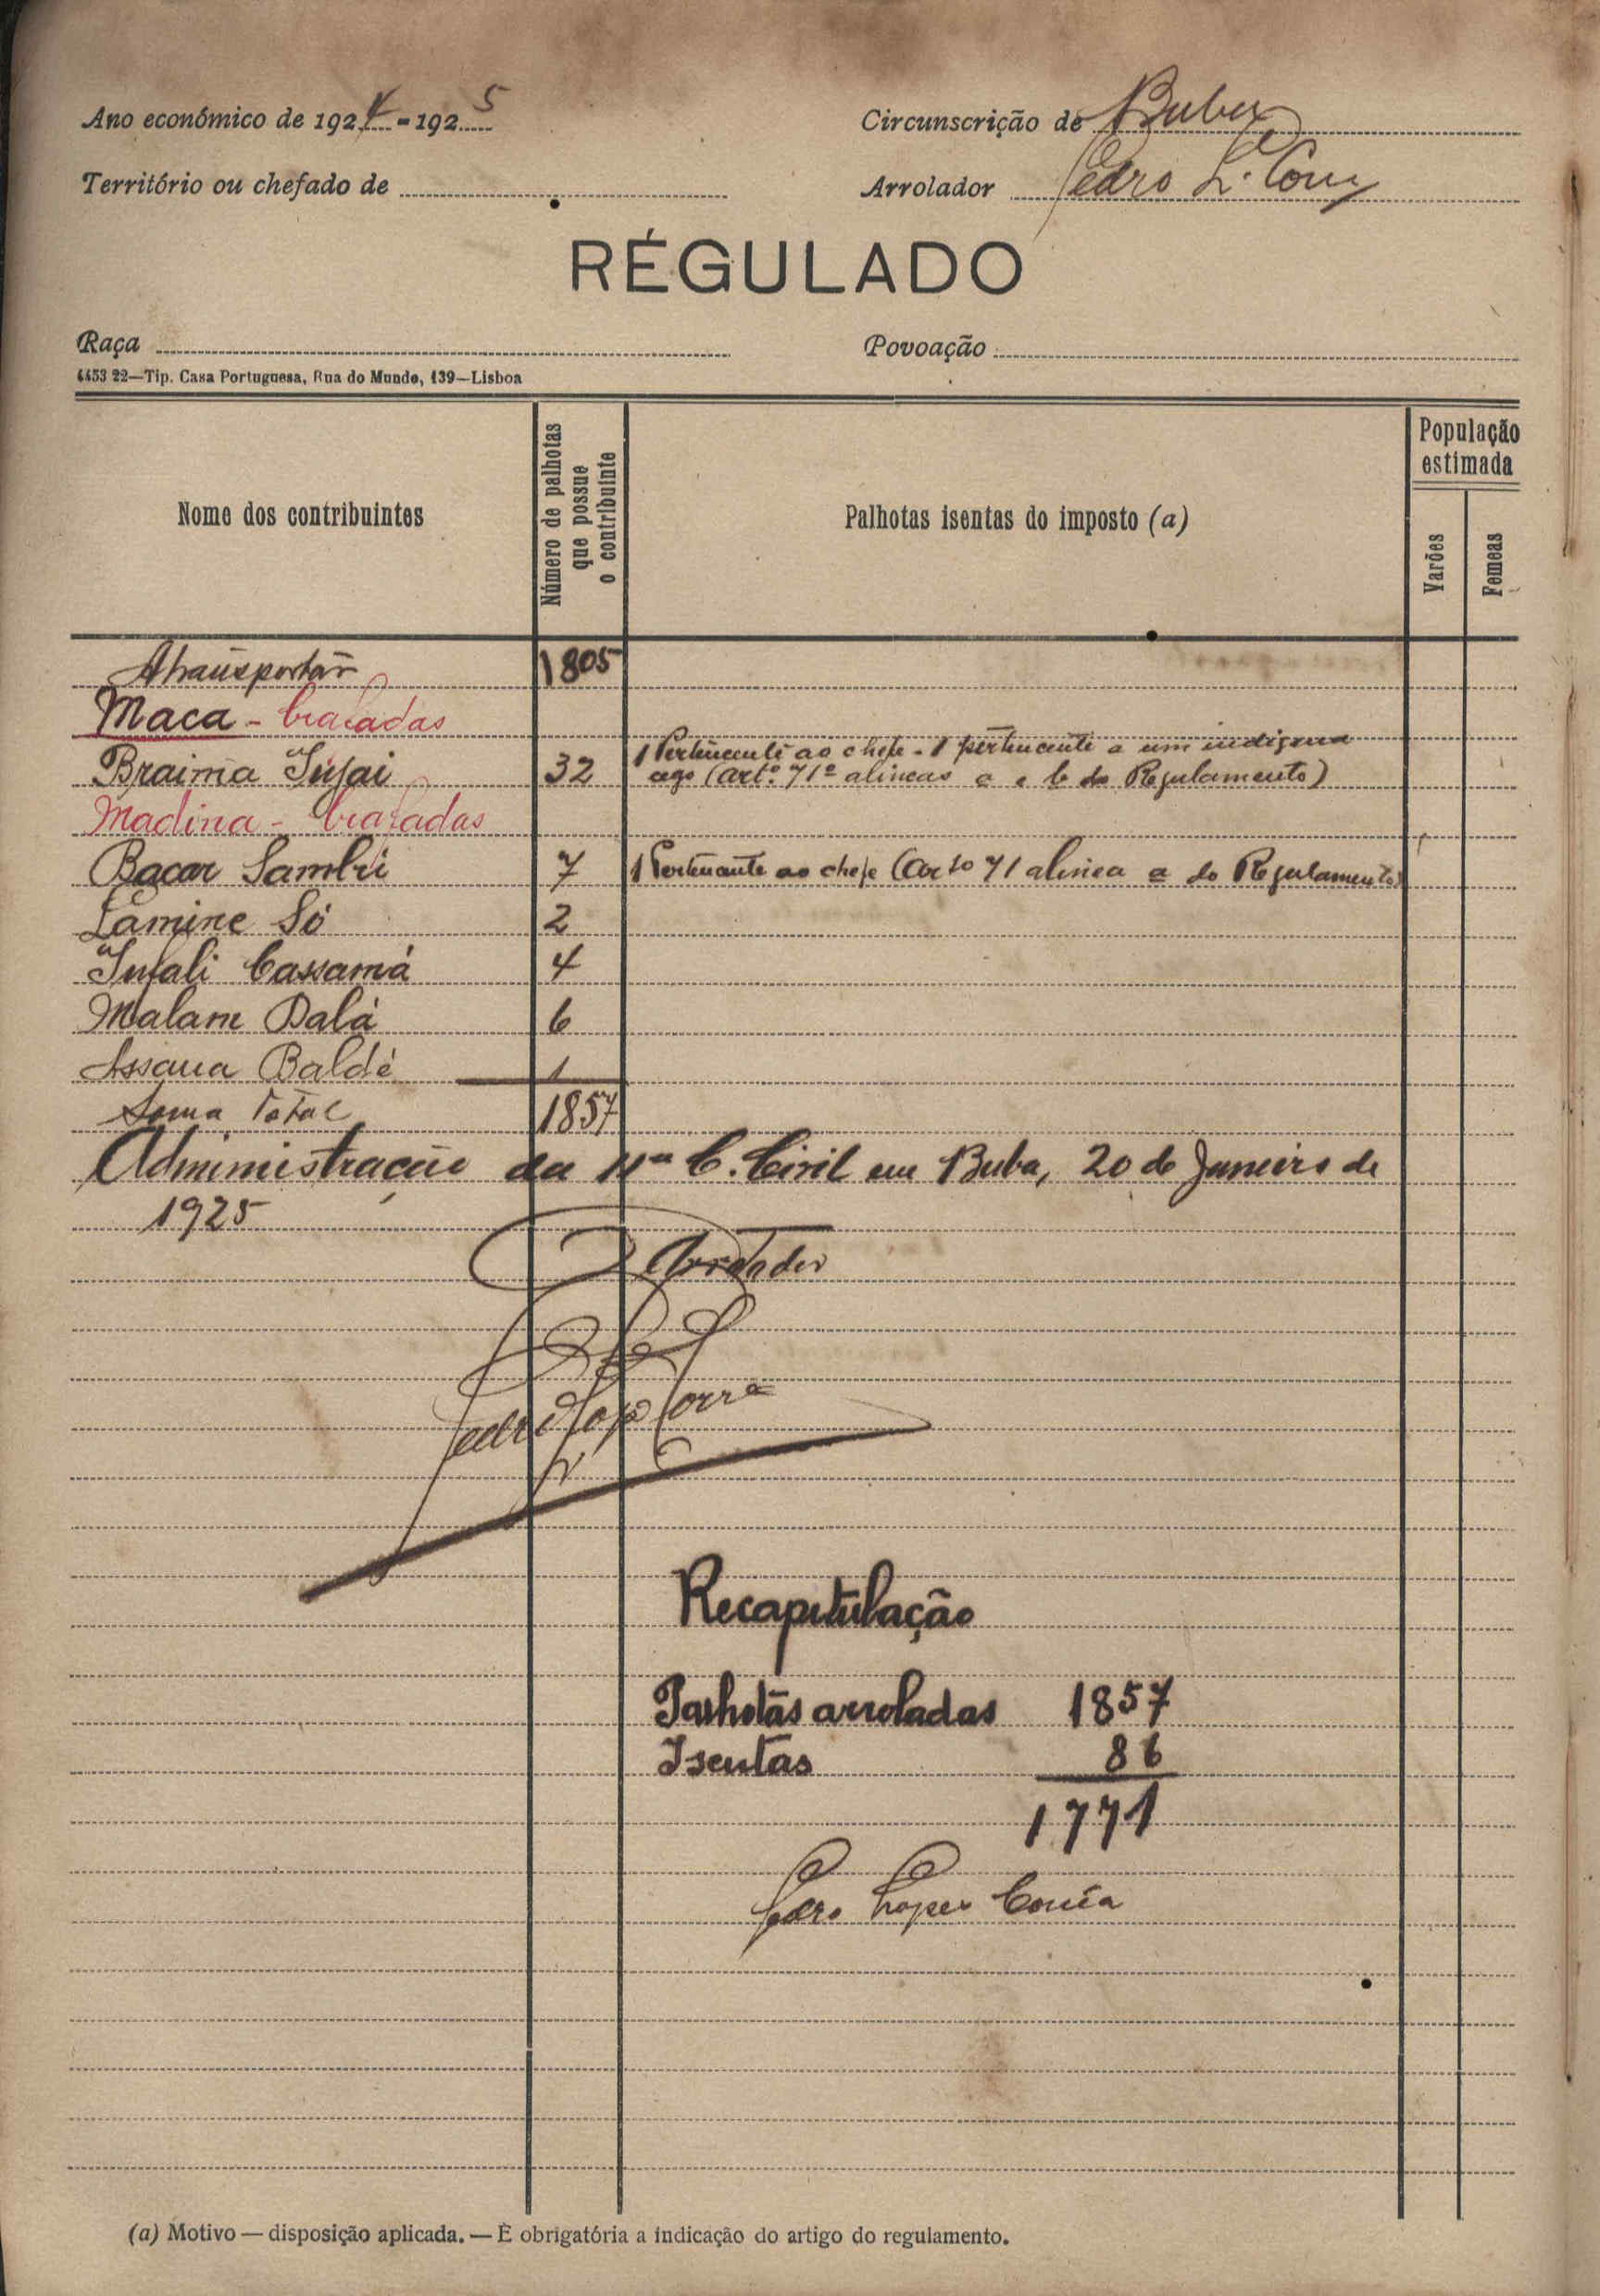 Ano económico de 1924-1925
Circunscrição de Buba
Território ou chefado de
Arrolador Pedro L. Corr
RÉGULADO
Raça
Povoação
4453 22—Tip. Casa Portuguesa, Rua do Mundo, 139—Lisboa
Nome dos contribuintes
Número de palhotas
que possue
o contribuinte
Palhotas isentas do imposto (a)
População
estimada
Varões
Femeas
A transportar 1805
Maca - biafadas
Braima Injai 32 1 Pertencente ao chefe - 1 pertencente a um indigena
cego (artº. 71º alineas a e b do Regulamento)
Madina - biafadas
Bacar Sambú 7 1 Pertencente ao chefe (arto 71 alinea a do Regulamento)
Lamine Só 2
Infali Cassamá 4
Malam Dabá 6
Assana Baldé 1
Soma total 1857
Administração da C. Civil em Buba, 20 de Janeiro de
1925
O Arrolador
Pedro Lopes Correa
Recapitulação
Palhotas arroladas 1857
Isentas 86
1771
Pedro Lopes Corrêa
(a) Motivo — disposição aplicada. — É obrigatória a indicação do artigo do regulamento.